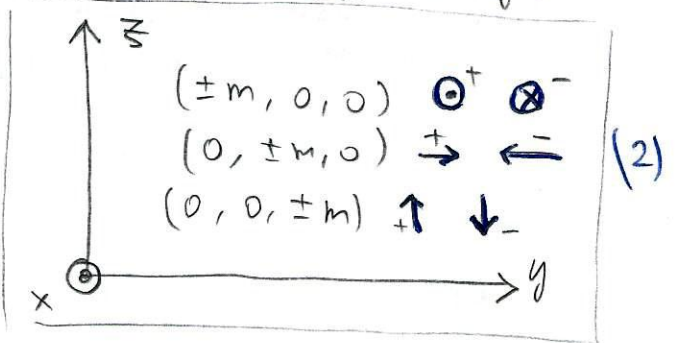 z
(±m, 0, 0) ⊙⁺ ⊗⁻
(0, ±m, 0) + → - ← (2)
(0, 0, ±m) + ↑ ↓ -
x y